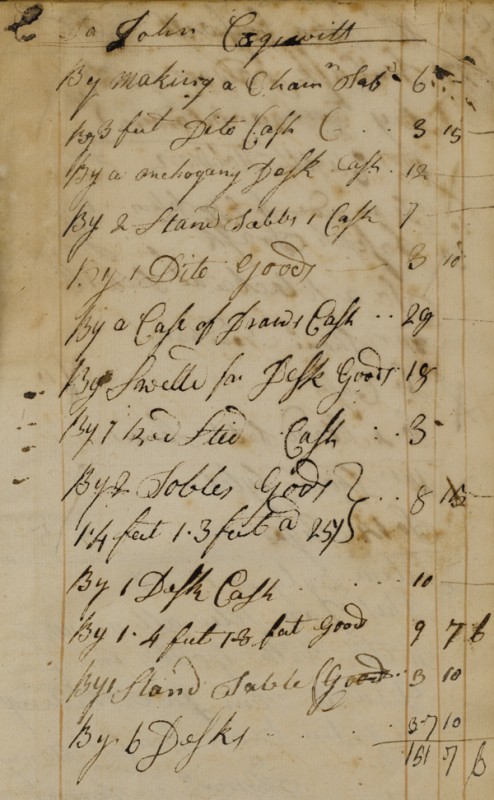 To John Cogswitt
By making a Cham^r Tab^l 6 -
By 3 feet Dito Cash 3 15 -
By a mehogany Desk Cash 12 -
By 2 Stand Tabbs 1 Cash 7 -
By 1 Dito Goods 3 10
By a Case of Draws Cash 29 -
By Swelld for Desk Goods 18
By 1 Bed Sted Cash 3
By 2 Tobles Gods
1·4 feet 1·3 feet a 25/ 8 15 -
By 1 Desk Cash 10 -
By 1·4 feet 1·3 feet Good 9 7 6
By 1 Stand Table Good 3 10
By 6 Desks 37 10
151 7 6